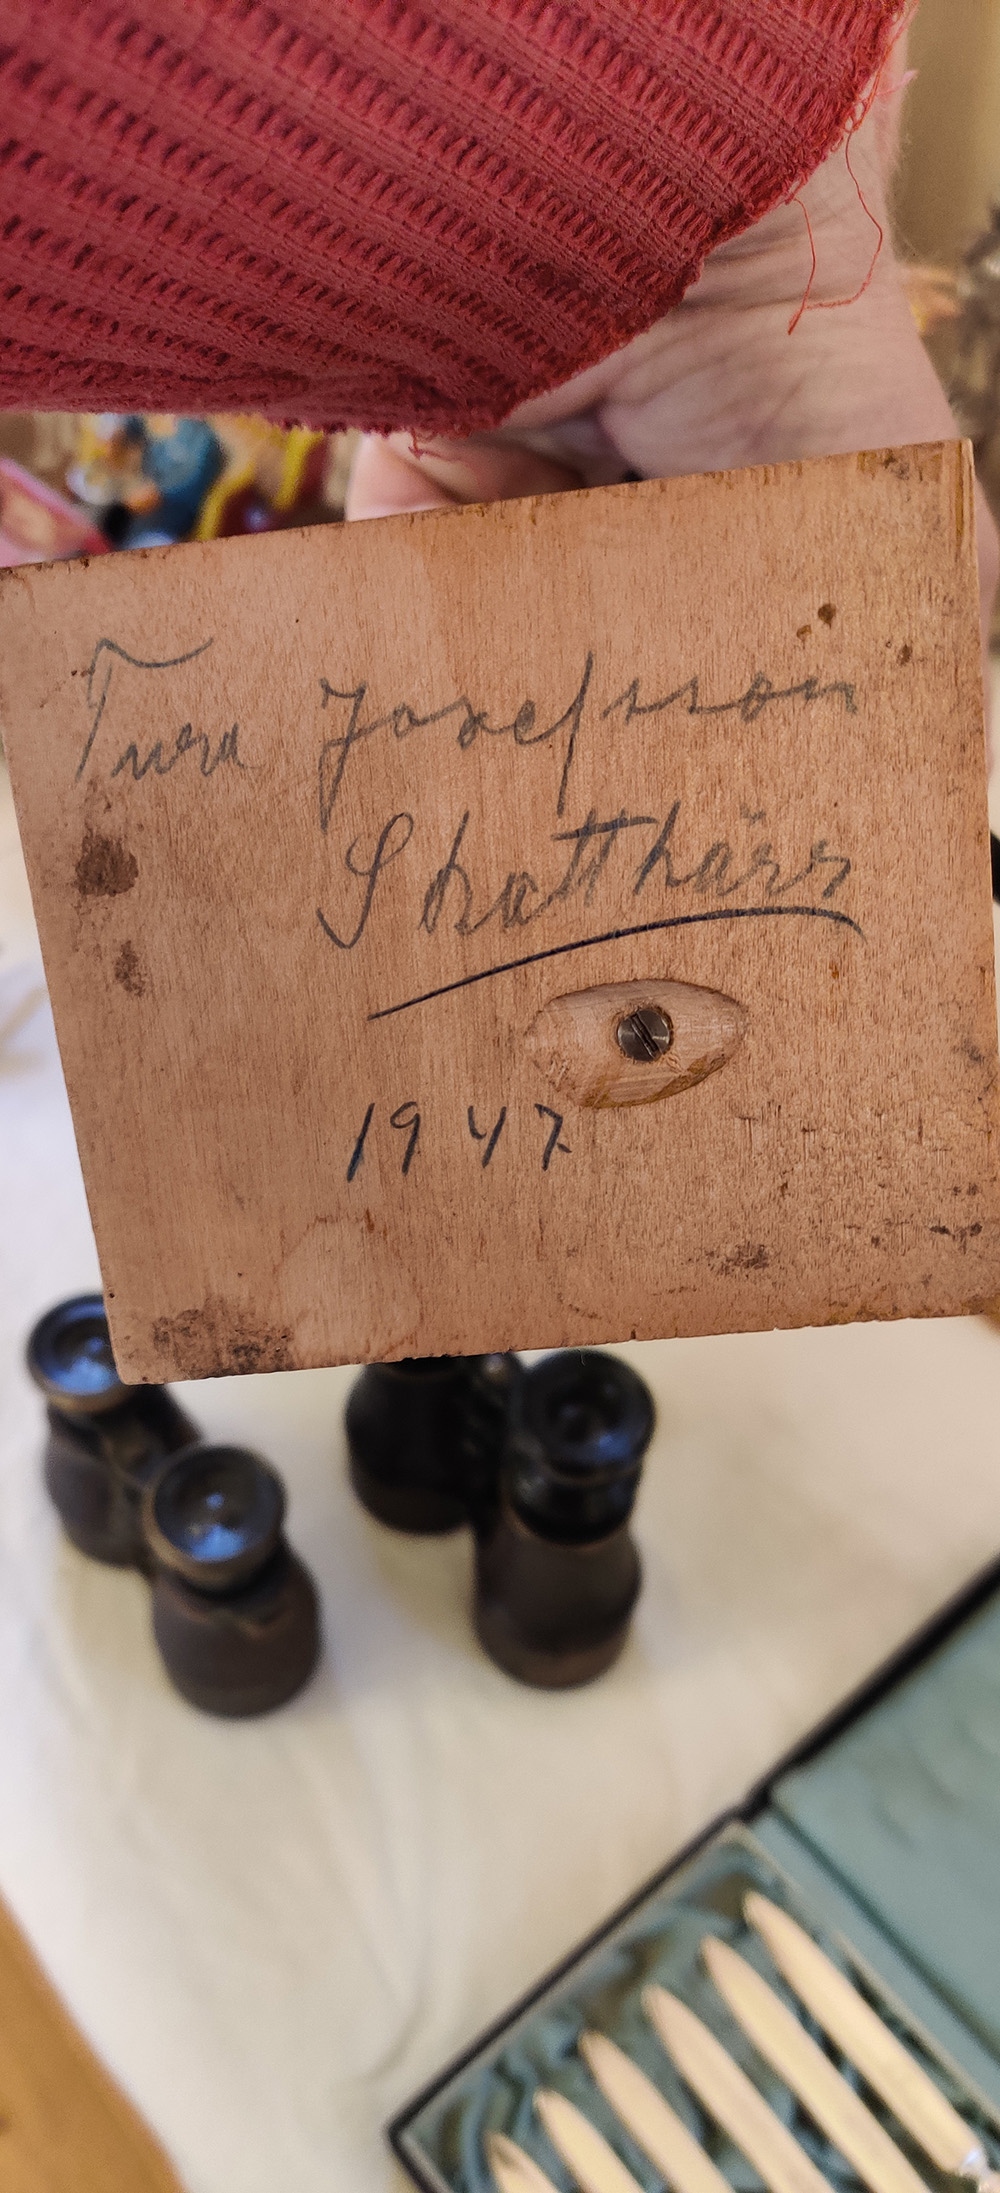 Tura Josefsson
Skattkärr
1947